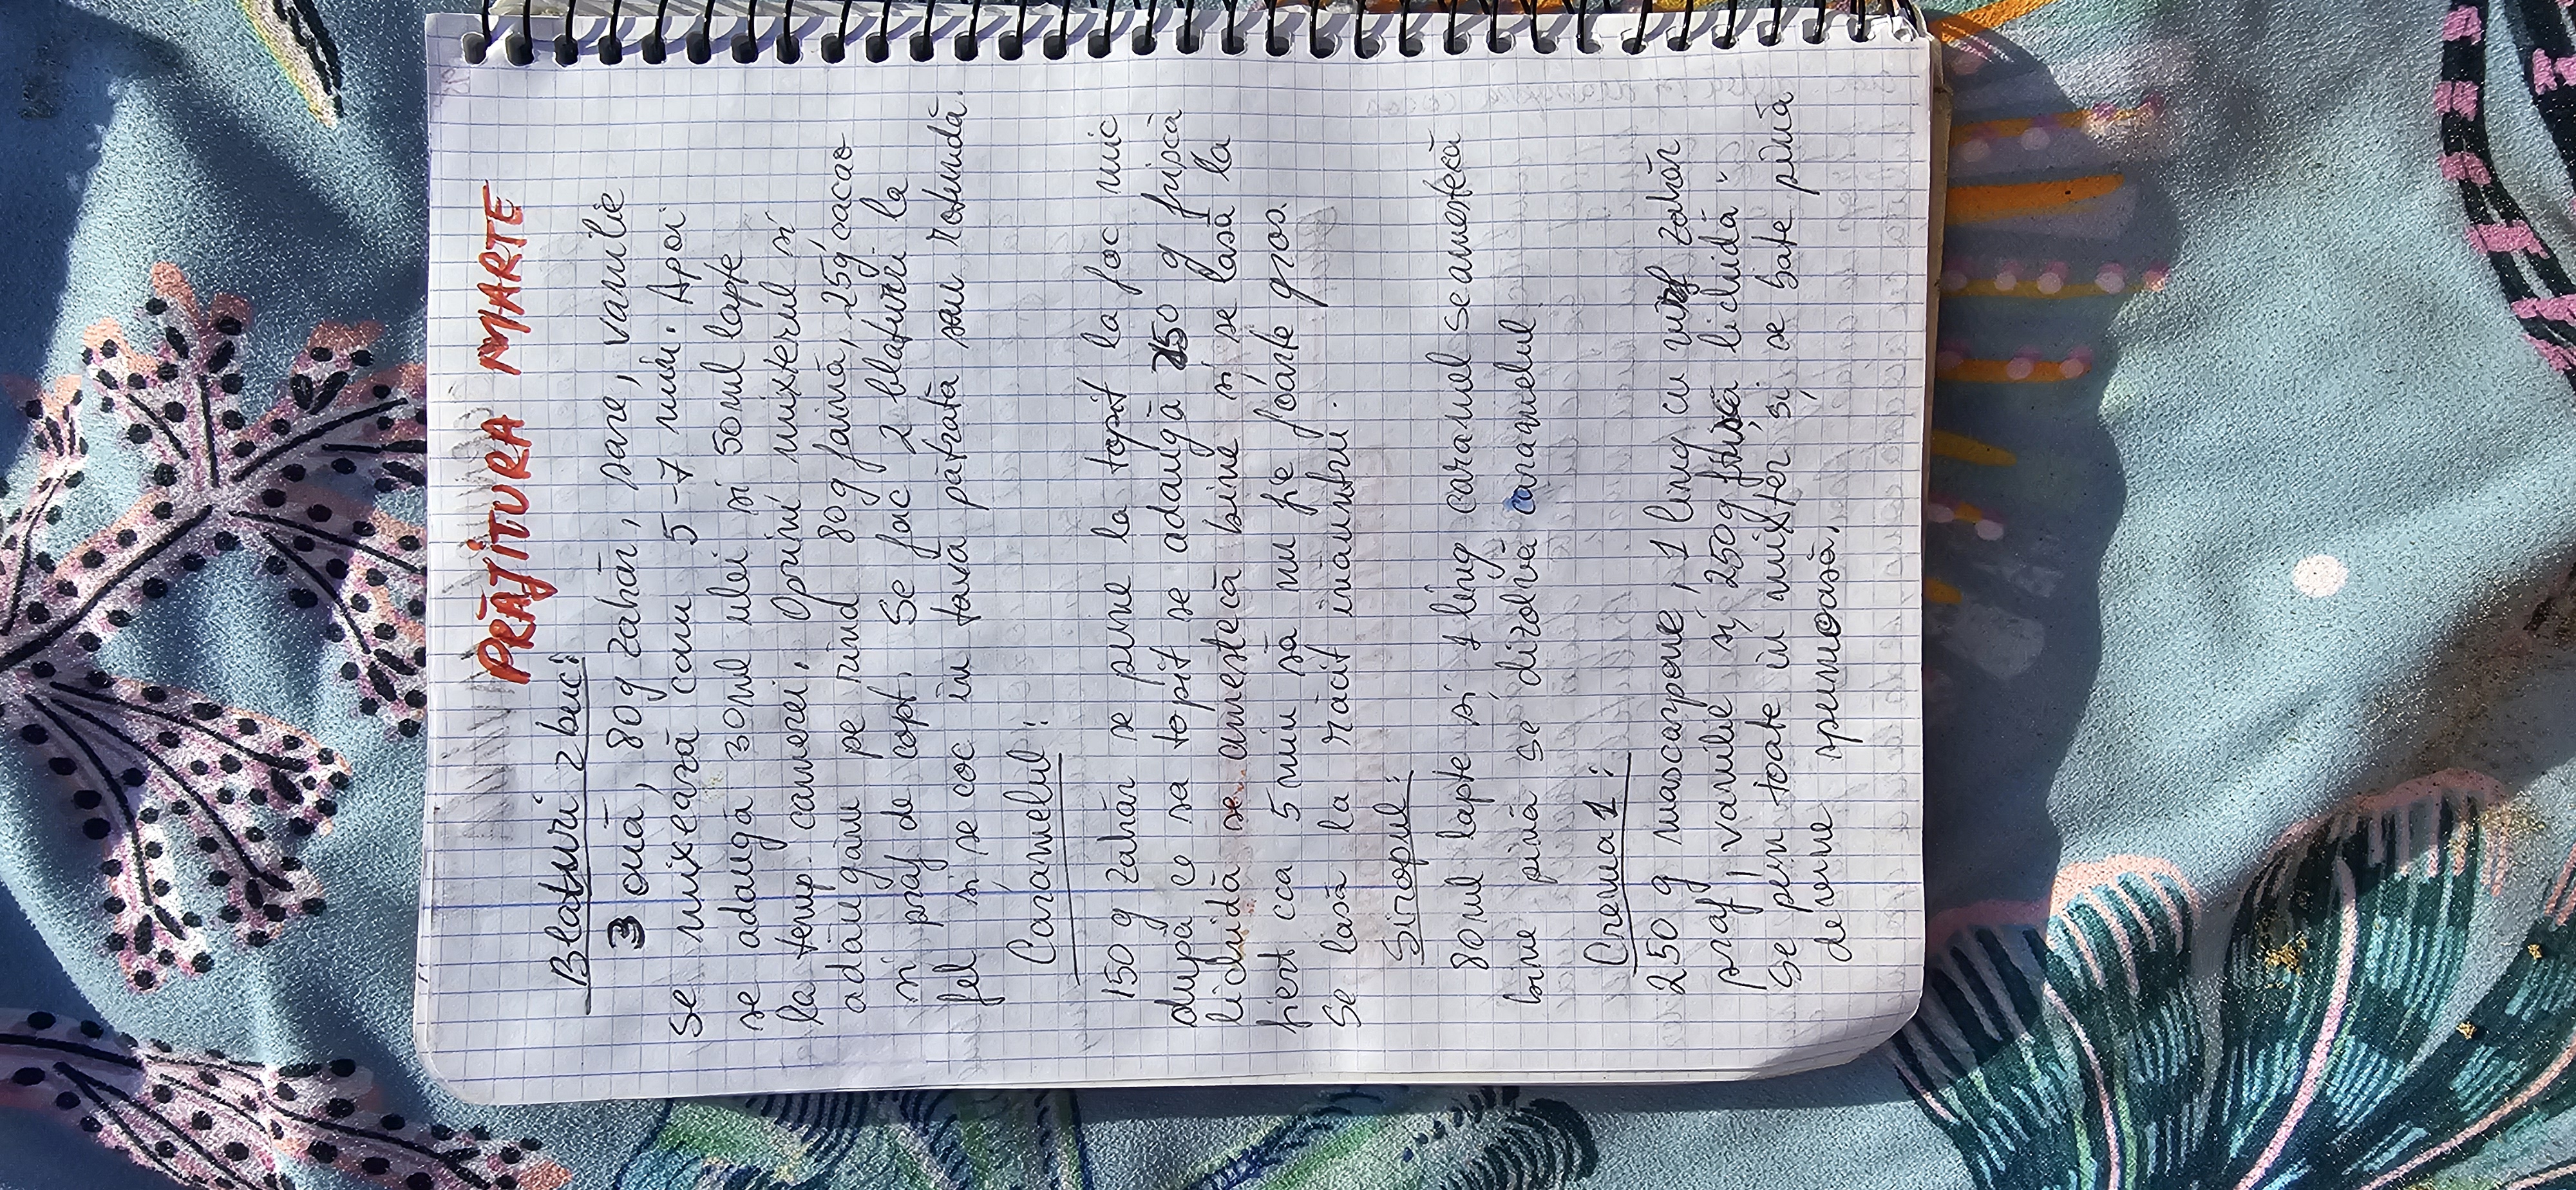 PRĂJITURA MARTE
Blaturi 2 buc:
3 ouă, 80g zahăr, sare, vanilie
se mixează cam 5-7 min. Apoi
se adaugă 30ml ulei si 50ml lapte
la temp. camerei. Oprim mixterul si
adăugăm pe rind 80g faină, 25g cacao
si praf de copt. Se fac 2 blaturi la
fel și se coc în tavă pătrată sau rotundă.
Caramelul:
150 g zahăr se pune la topit la foc mic
după ce sa topit se adaugă g frișcă
lichidă se amestecă bine și se lasă la
fiert cca 5 min să nu fie foarte gros.
Se lasă la răcit inăuntru.
Siropul:
80ml lapte și 1 ling caramel se amestecă
bine pină se dizolvă caramelul.
Crema 1:
250 g mascarpone, 1 ling cu virf zahăr
praf, vanilie și 250g frișcă lichidă.
Se pun toate in mixter și se bate pină
devine spumoasă.